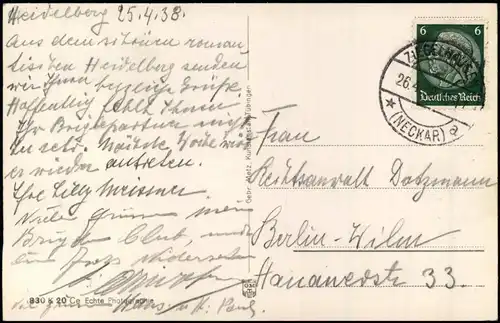 Heidelberg 25.4.38.
Aus dem schönen roman-
tischen Heidelberg senden
wir Ihnen herzliche Grüße
Hoffentlich fehlt Ihnen
Ihr Bridgepartner nicht
zu sehr. Nächste Woche wird
er wieder antreten.
Ihre Lilly Meissner
Viele Grüße mein
Bridge Club, und
ein frohes Wiedersehen
Gebr. Metz, Kunstanstalt, Tübingen
B30 K 20 Ce Echte Photographie
6 6
Deutsches Reich
ZIEGELHAUSEN
26.4
(NECKAR) a
Frau
Rechtsanwalt Dotzmann
Berlin-Wilm
Hanauerstr 33.